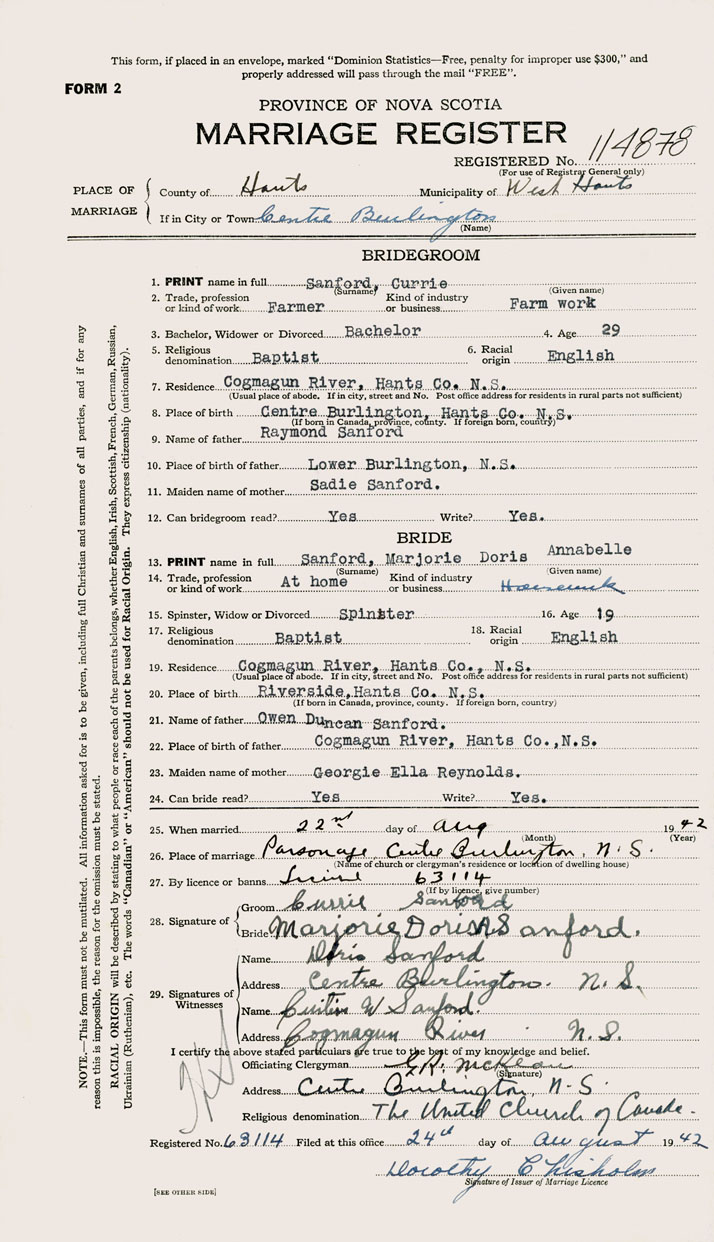 This form, if placed in an envelope, marked “Dominion Statistics—Free, penalty for improper use $300,” and
properly addressed will pass through the mail “FREE”.
FORM 2
PROVINCE OF NOVA SCOTIA
MARRIAGE REGISTER
REGISTERED No. 114878
(For use of Registrar General only)
PLACE OF MARRIAGE
County of Hants Municipality of West Hants
If in City or Town Centre Burlington
(Name)
BRIDEGROOM
1. PRINT name in full Sanford, Currie
(Surname) (Given name)
2. Trade, profession or kind of work Farmer Kind of industry or business Farm work
3. Bachelor, Widower or Divorced Bachelor 4. Age 29
5. Religious denomination Baptist 6. Racial origin English
7. Residence Cogmagun River, Hants Co. N.S.
(Usual place of abode. If in city, street and No. Post office address for residents in rural parts not sufficient)
8. Place of birth Centre Burlington, Hants Co. N.S.
(If born in Canada, province, county. If foreign born, country)
9. Name of father Raymond Sanford
10. Place of birth of father Lower Burlington, N.S.
11. Maiden name of mother Sadie Sanford.
12. Can bridegroom read? Yes Write? Yes.
BRIDE
13. PRINT name in full Sanford, Marjorie Doris Annabelle
(Surname) (Given name)
14. Trade, profession or kind of work At home Kind of industry or business Housework
15. Spinster, Widow or Divorced Spinster 16. Age 19
17. Religious denomination Baptist 18. Racial origin English
19. Residence Cogmagun River, Hants Co., N.S.
(Usual place of abode. If in city, street and No. Post office address for residents in rural parts not sufficient)
20. Place of birth Riverside, Hants Co. N.S.
(If born in Canada, province, county. If foreign born, country)
21. Name of father Owen Duncan Sanford.
22. Place of birth of father Cogmagun River, Hants Co., N.S.
23. Maiden name of mother Georgie Ella Reynolds.
24. Can bride read? Yes Write? Yes.
25. When married 22nd day of Aug 1942
(Month) (Year)
26. Place of marriage Parsonage, Centre Burlington, N.S.
(Name of church or clergyman's residence or location of dwelling house)
27. By licence or banns License 63114
(If by licence, give number)
28. Signature of
Groom Currie Sanford
Bride Marjorie Doris A Sanford.
29. Signatures of Witnesses
Name Doris Sanford
Address Centre Burlington. N.S.
Name Curtis W Sanford.
Address Cogmagun River N.S.
I certify the above stated particulars are true to the best of my knowledge and belief.
Officiating Clergyman McKean
(Signature)
Address Centre Burlington, N.S.
Religious denomination The United Church of Canada.
Registered No. 63114 Filed at this office 24th day of august 1942
Dorothy Chisholm
Signature of Issuer of Marriage Licence
[SEE OTHER SIDE]
NOTE.—This form must not be mutilated. All information asked for is to be given, including full Christian and surnames of all parties, and if for any
reason this is impossible, the reason for the omission must be stated.
RACIAL ORIGIN will be described by stating to what people or race each of the parents belongs, whether English, Irish, Scottish, French, German, Russian,
Ukrainian (Ruthenian), etc. The words “Canadian” or “American” should not be used for Racial Origin. They express citizenship (nationality).